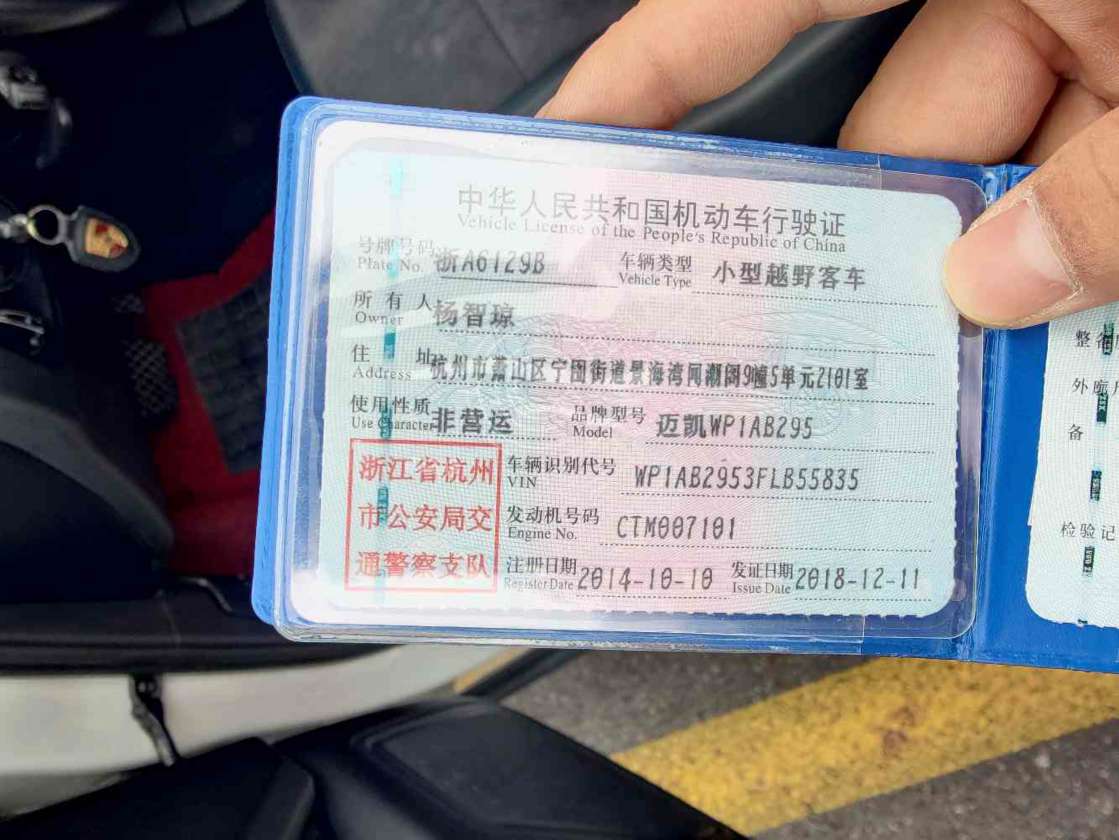 中华人民共和国机动车行驶证
Vehicle License of the People's Republic of China
号牌号码 浙A6129B 车辆类型 小型越野客车
Plate No. Vehicle Type
所有人 杨智琼
Owner
住址 杭州市萧山区宁围街道景海湾闻潮阁9幢5单元2101室
Address
使用性质 非营运 品牌型号 迈凯WP1AB295
Use Character Model
浙江省杭州
市公安局交
通警察支队
车辆识别代号 WP1AB2953FLB55835
VIN
发动机号码 CTM007101
Engine No.
注册日期 2014-10-10 发证日期 2018-12-11
Register Date Issue Date
整
外
备
检验记